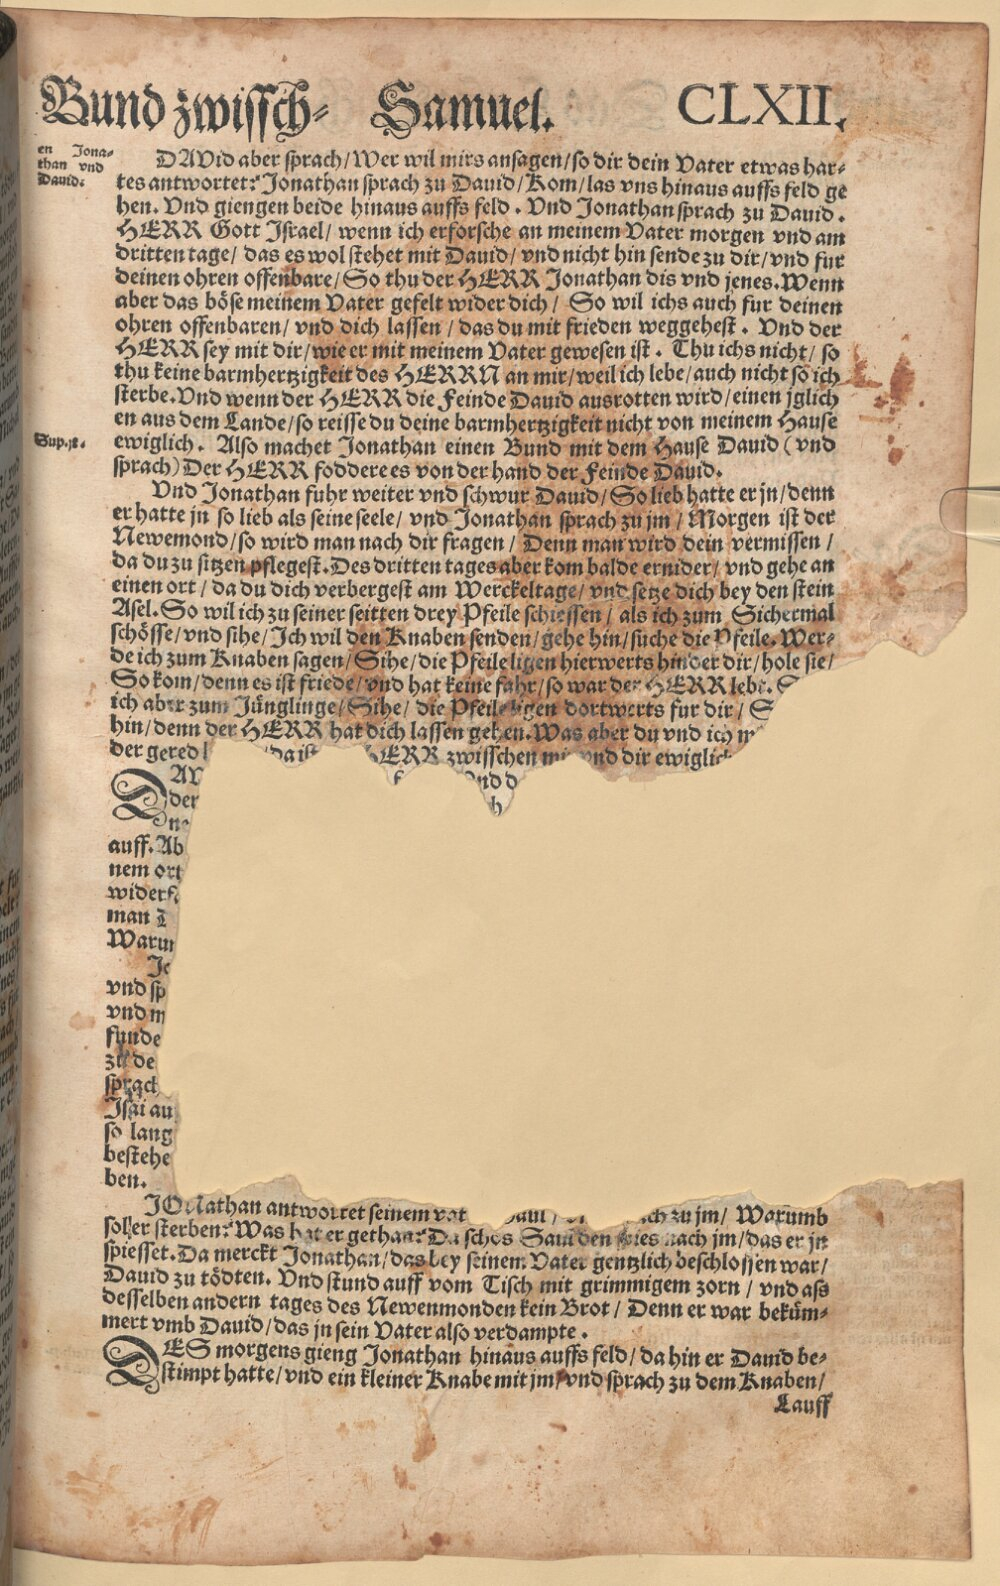 Bund zwissch- Samuel. CLXII.
en Jona-
than vnd
Dauid.
DAVid aber sprach/Wer wil mirs ansagen/so dir dein Vater etwas har-
tes antwortet? Jonathan sprach zu Dauid/Kom/las vns hinaus auffs feld ge
hen. Vnd giengen beide hinaus auffs feld. Vnd Jonathan sprach zu Dauid.
HERR Gott Israel/ wenn ich erforsche an meinem Vater morgen vnd am
dritten tage/ das es wol stehet mit Dauid/ vnd nicht hin sende zu dir/vnd fur
deinen ohren offenbare/So thu der HERR Jonathan dis vnd jenes. Wenn
aber das böse meinem Vater gefelt wider dich/ So wil ichs auch fur deinen
ohren offenbaren/ vnd dich lassen/ das du mit frieden weggehest. Vnd der
HERR sey mit dir/wie er mit meinem Vater gewesen ist. Thu ichs nicht/ so
thu keine barmhertzigkeit des HERRN an mir/weil ich lebe/auch nicht so ich
sterbe. Vnd wenn der HERR die Feinde Dauid ausrotten wird/einen jglich
en aus dem Lande/so reisse du deine barmhertzigkeit nicht von meinem Hause
Sup.18.
ewiglich. Also machet Jonathan einen Bund mit dem Hause Dauid (vnd
sprach) Der HERR foddere es von der hand der Feinde Dauid.
Vnd Jonathan fuhr weiter vnd schwur Dauid/So lieb hatte er jn/denn
er hatte jn so lieb als seine seele/ vnd Jonathan sprach zu jm/Morgen ist der
Newemond/so wird man nach dir fragen/ Denn man wird dein vermissen/
da du zu sitzen pflegest. Des dritten tages aber kom balde ernider/ vnd gehe an
einen ort/ da du dich verbergest am Werckeltage/ vnd setze dich bey den stein
Asel. So wil ich zu seiner seitten drey Pfeile schiessen/ als ich zum Sichermal
schösse/vnd sihe/Ich wil den Knaben senden/gehe hin/suche die Pfeile. Wer-
de ich zum Knaben sagen/Sihe/die Pfeile ligen hierwerts hinder dir/hole sie/
So kom/denn es ist friede/vnd hat keine fahr/so war der HERR lebt. S
ich aber zum Jünglinge/Sihe/ die Pfeile ligen dortwerts fur dir/
hin/denn der HERR hat dich lassen gehen. Was aber du vnd ich
der gered da ist HERR zwisschen mir vnd dir ewiglich
der
auff. Ab
nem ort
widerk
man
Warum
vnd sp
vnd m
funde
zu de
sprach
Isai au
so lang
bestehe
ben.
JONathan antwortet seinem vat Saul/ ch zu jm/ Warumb
sol er sterben? Was hat er gethan? Da schos Saul den spies nach jm/das er jn
spiesset. Da merckt Jonathan/das bey seinem Vater gentzlich beschlossen war/
Dauid zu tödten. Vnd stund auff vom Tisch mit grimmigem zorn/ vnd ass
desselben andern tages des Newenmonden kein Brot/ Denn er war beküm-
mert vmb Dauid/das jn sein Vater also verdampte.
DES morgens gieng Jonathan hinaus auffs feld/ da hin er Dauid be-
stimpt hatte/vnd ein kleiner Knabe mit jm/vnd sprach zu dem Knaben/
Lauff